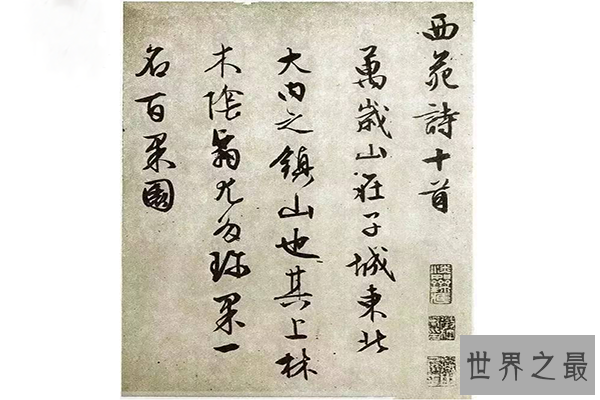 西苑詩十首
萬歲山在子城東北
大内之鎮山也其上林
木陰翳尤多珍果一
名百果園
世界之最